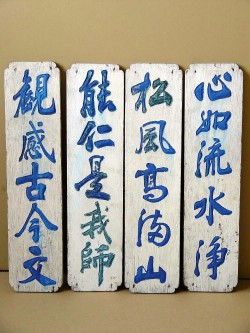 心如流水淨
松風高満山
能仁是我師
観感古今文